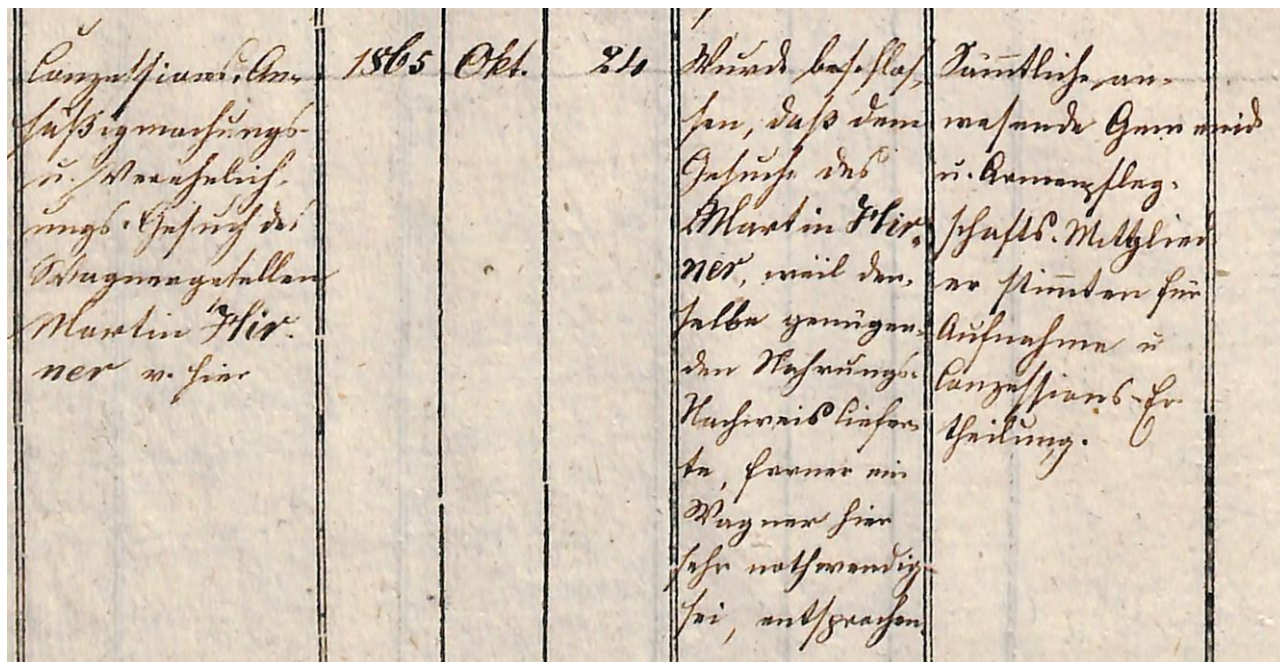 Conzessions-, An-
säßigmachungs-
u. Verehelich-
ungs-Gesuch des
Wagnergesellen
Martin Hir-
ner v. hier
1865
Okt.
24
Wurde beschlos-
sen, daß dem
Gesuche des
Martin Hir-
ner, weil der-
selbe genügen-
den Nahrungs-
Nachweis liefer-
te, ferner ein
Wagner hier
sehr nothwendig
sei, entsprochen.
Sämmtliche an-
wesende Gemeinde
u. Armenpfleg-
schafts-Mitglied
er stimmten für
Aufnahme u
Conzessions-Er
theilung.